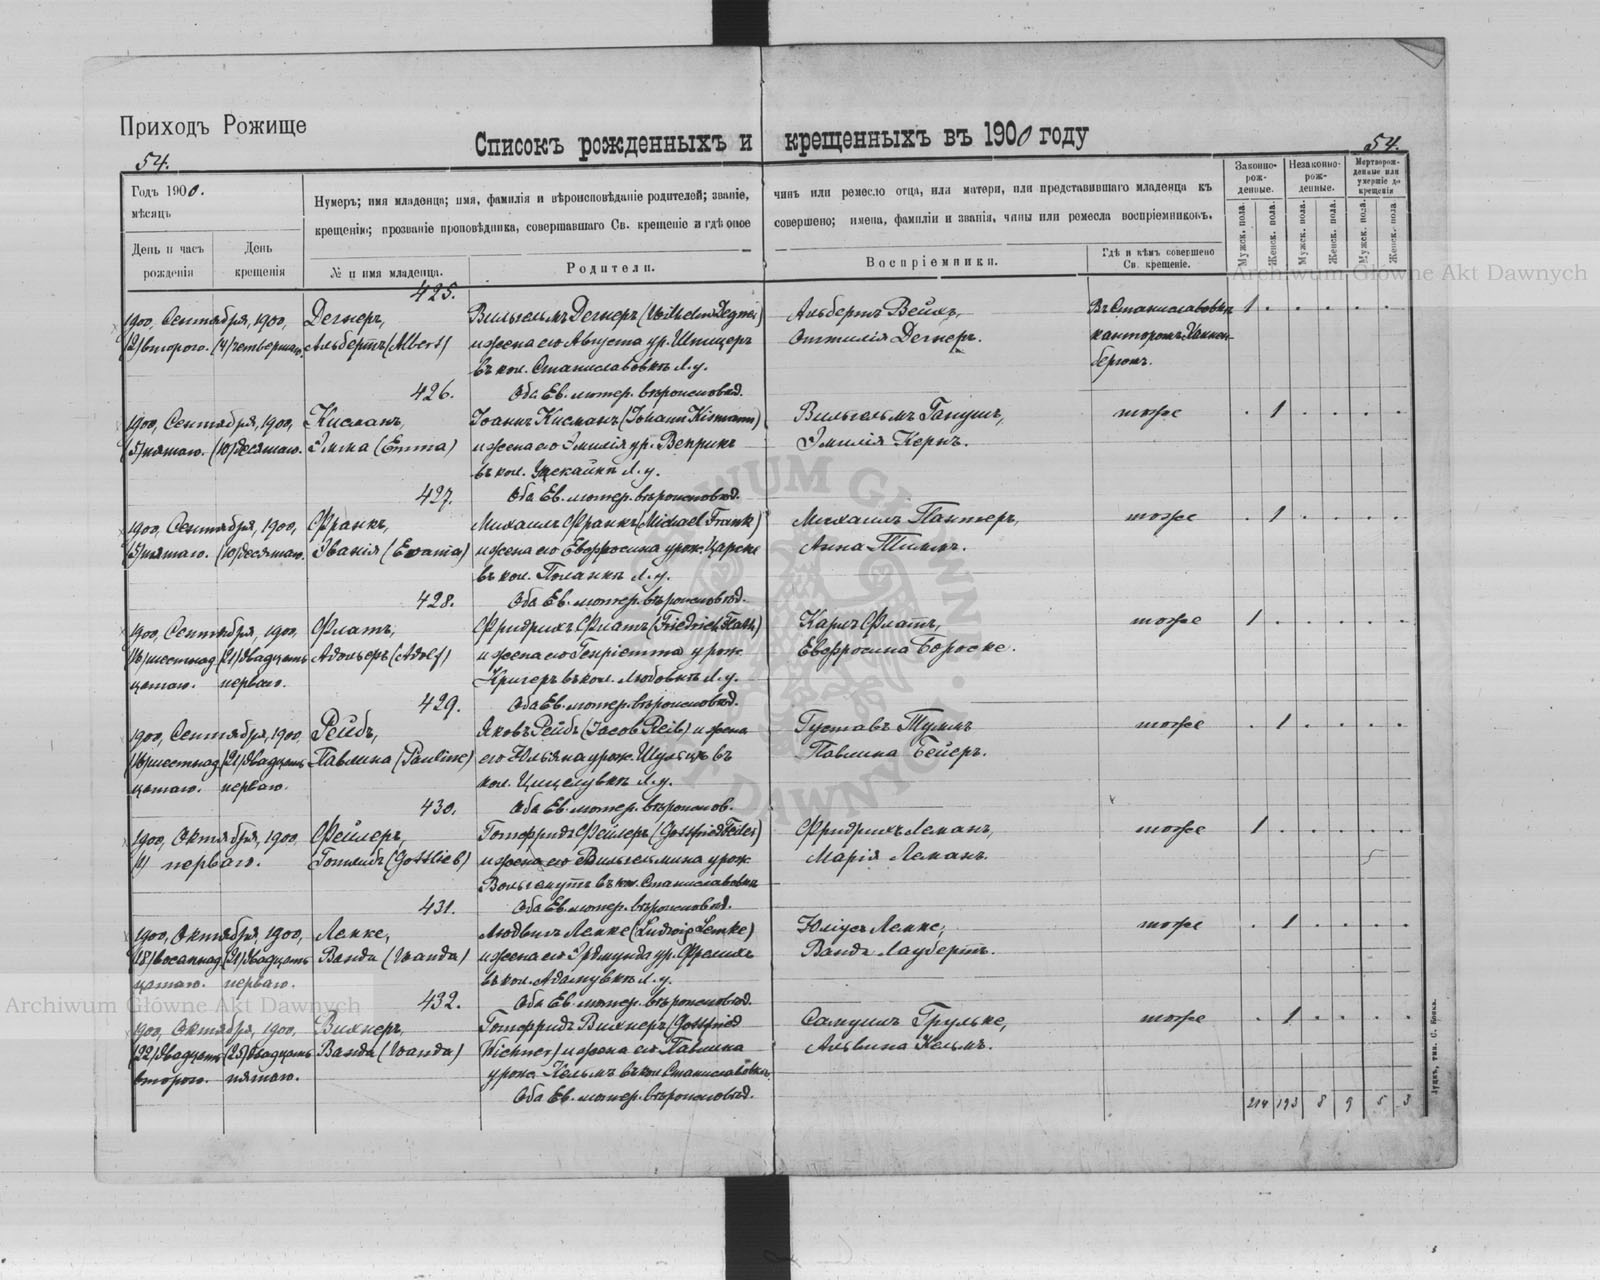 Приходъ Рожище
Списокъ рожденныхъ и крещенныхъ въ 1900 году
54.
54.
Годъ 1900.
мѣсяцъ
Нумеръ; имя младенца; имя, фамилія и вѣроисповѣданіе родителей; званіе, чинъ или ремесло отца, или матери, или представившаго младенца къ
крещенію; прозваніе проповѣдника, совершавшаго Св. крещеніе и гдѣ оное совершено; имена, фамиліи и званія, чины или ремесла воспріемниковъ.
Законно-рож-денные.
Незаконно-рож-денные.
Мертворож-денные или умершіе до крещенія
День и часъ рожденія
День крещенія
№ и имя младенца.
Родители.
Воспріемники.
Гдѣ и кѣмъ совершено Св. крещеніе.
Мужск. пола.
Женск. пола.
Мужск. пола.
Женск. пола.
Мужск. пола.
Женск. пола.
425.
1900, Сентября, 1900, Дегнеръ, Вильгельмъ Дегнеръ (Wilhelm Degner) Альбертъ Вейхъ, Въ Станиславовкѣ 1
(2) второго. (4) четвертаго. Альбертъ (Albert) и жена его Августа ур. Штицеръ Оттилія Дегнеръ. канторомъ
въ кол. Станиславовкѣ Л. у. бергомъ.
426. Оба Ев. лютер. вѣроисповѣд.
1900, Сентября, 1900, Кисманъ, Іоаннъ Кисманъ (Johann Kismann) Вильгельмъ Ганушъ, тоже 1
(5) пятаго. (10) десятаго. Эмма (Emma) и жена его Эмилія ур. Веприкъ Эмилія Кернъ.
въ кол. Л. у.
427. Оба Ев. лютер. вѣроисповѣд.
1900, Сентября, 1900, Франкъ, Михаилъ Франкъ (Michael Frank) Михаилъ Пантеръ, тоже 1
(5) пятаго. (10) десятаго. Эванія (Ewania) и жена его Евфросина урож. Царске Анна Тиммъ.
въ кол. Поланкѣ Л. у.
428. Оба Ев. лютер. вѣроисповѣд.
1900, Сентября, 1900, Флатъ, Фридрихъ Флатъ (Friedrich Flath) Карлъ Флатъ, тоже 1
(16) шестнад (21) двадцать Адольфъ (Adolf) и жена его Генріетта урож. Евфросина Бороске.
цатаго. перваго. Кригеръ въ кол. Любовкѣ Л. у.
429. Оба Ев. лютер. вѣроисповѣд.
1900, Сентября, 1900, Рейбъ, Яковъ Рейбъ (Jacob Reib) и жена Густавъ Туммъ тоже 1
(16) шестнад (21) двадцать Павлина (Pauline) его Юльяна урож. Шульцъ въ Павлина Бейеръ.
цатаго. перваго. кол. Л. у.
430. Оба Ев. лютер. вѣроисповѣд.
1900, Октября, 1900, Фейлеръ, Готфридъ Фейлеръ (Gottfried Feiler) Фридрихъ Леманъ, тоже 1
(1) перваго. Готлибъ (Gottlieb) и жена его Вильгельмина урож. Марія Леманъ.
Вольгемутъ въ кол. Станиславовкѣ
431. Оба Ев. лютер. вѣроисповѣд.
1900, Октября, 1900, Лемке, Людвигъ Лемке (Ludwig Lemke) Юліусъ Лемке, тоже 1
(18) восемнад (21) двадцать Ванда (Wanda) и жена его Эрдмунда ур. Ванда Лаубертъ.
цатаго. перваго. въ кол. Адамувкѣ Л. у.
432. Оба Ев. лютер. вѣроисповѣд.
1900, Октября, 1900, Вихнеръ, Готфридъ Вихнеръ (Gottfried Самуилъ Грульке, тоже 1
(22) двадцать (25) двадцать Ванда (Wanda) Wichner) и жена его Павлина Альвина Кельмъ.
второго. пятаго. урож. Кельмъ въ кол. Станиславовкѣ
Оба Ев. лютер. вѣроисповѣд.
214 193 8 9 5 3
Луцкъ, тип. С. Бонка.
Archiwum Główne Akt Dawnych
Archiwum Główne Akt Dawnych
ARCHIWUM GŁÓWNE AKT DAWNYCH